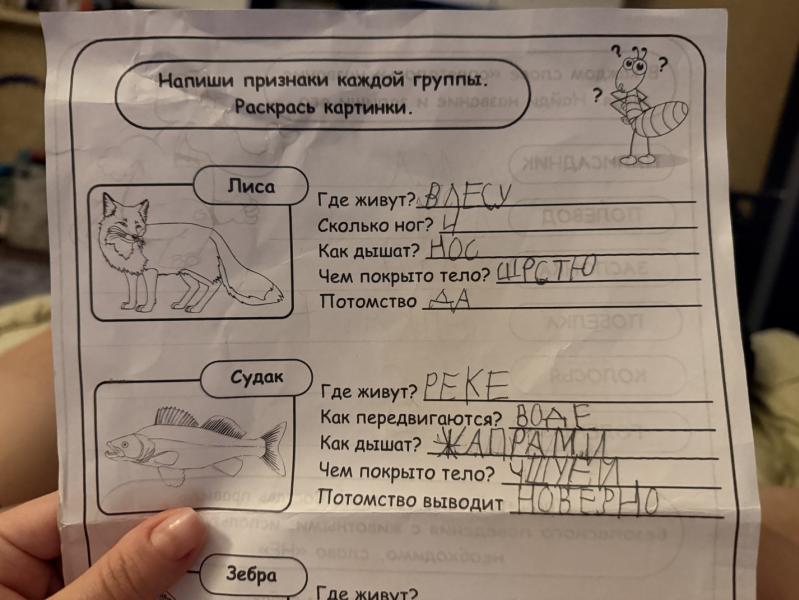 Напиши признаки каждой группы.
Раскрась картинки.
? ?
?
Лиса
Где живут? ВЛЕСУ
Сколько ног? Ч
Как дышат? НОС
Чем покрыто тело? ШРСТЮ
Потомство ДА
Судак
Где живут? РЕКЕ
Как передвигаются? ВОДЕ
Как дышат? ЖАПРАМИ
Чем покрыто тело? ЧШУЕЙ
Потомство выводит НОВЕРНО
Зебра
Где живут?